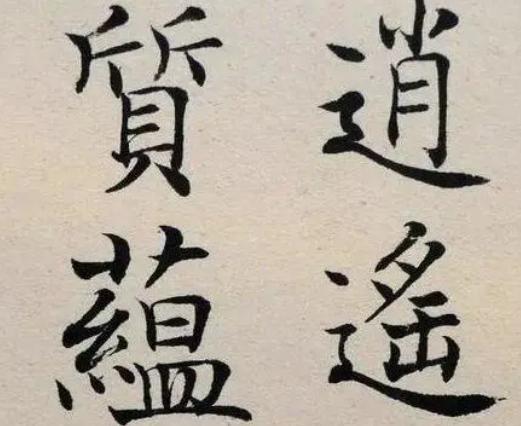 逍遙
質蘊